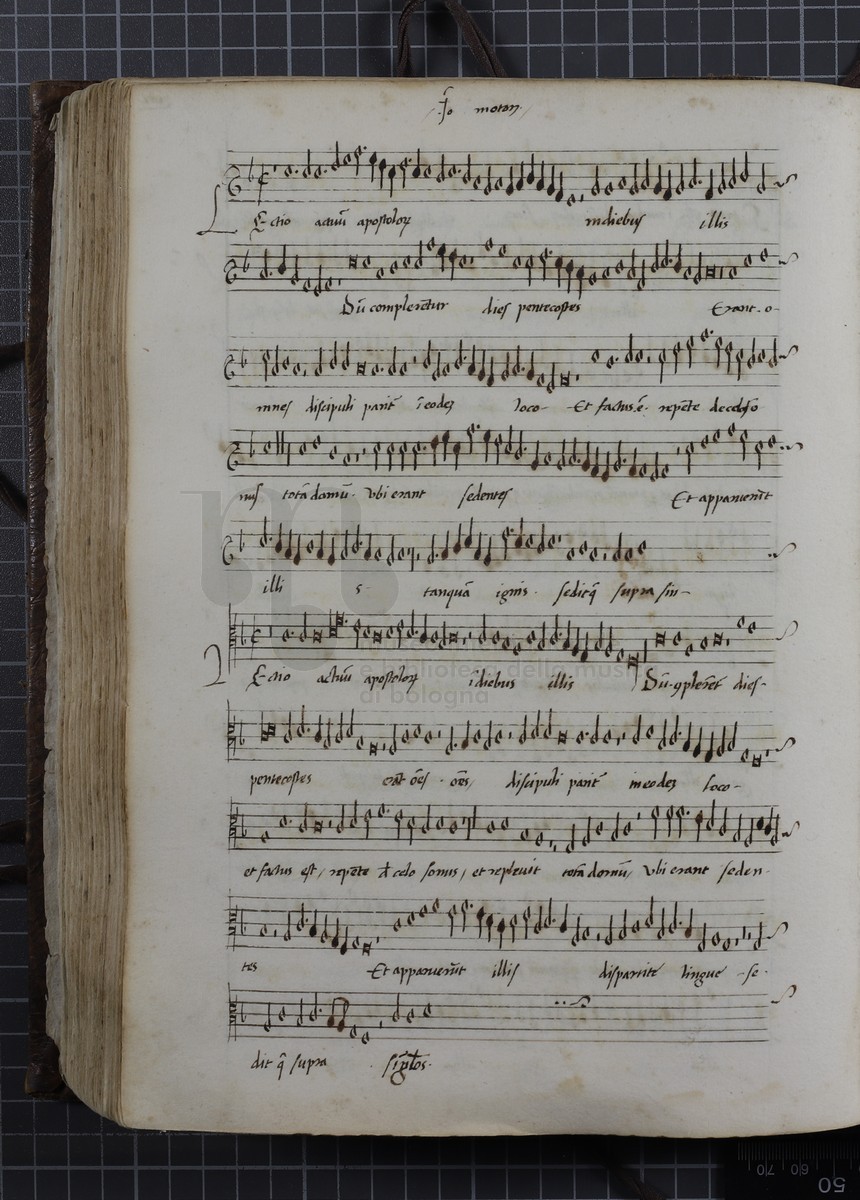 Jo moton
LEctio actuū apostoloꝝ indiebus illis
Dū complerētur dies pentecostes Erant o-
mnes discipuli parit̄ ī eodeꝫ loco- Et factus ē repēte de celo so
nus totā domū vbi erant sedentes Et apparuerūt
illi s- tanquā ignis sedit qꝫ supra sin-
LEctio actuū apostoloꝝ ī diebus illis Dū ꝯplerēt̄ dies-
e biblioteca della musica
di bologna
pentecostes erāt oēs oēs, discipuli parit̄ in eodeꝫ loco-
et factus est, repēte d̄ celo sonus, et repleuit totā domū, vbi erant seden-
tes Et apparuerūt illis dispartite lingue -se-
dit q̄ supra sīgl̄os-
60 70
50